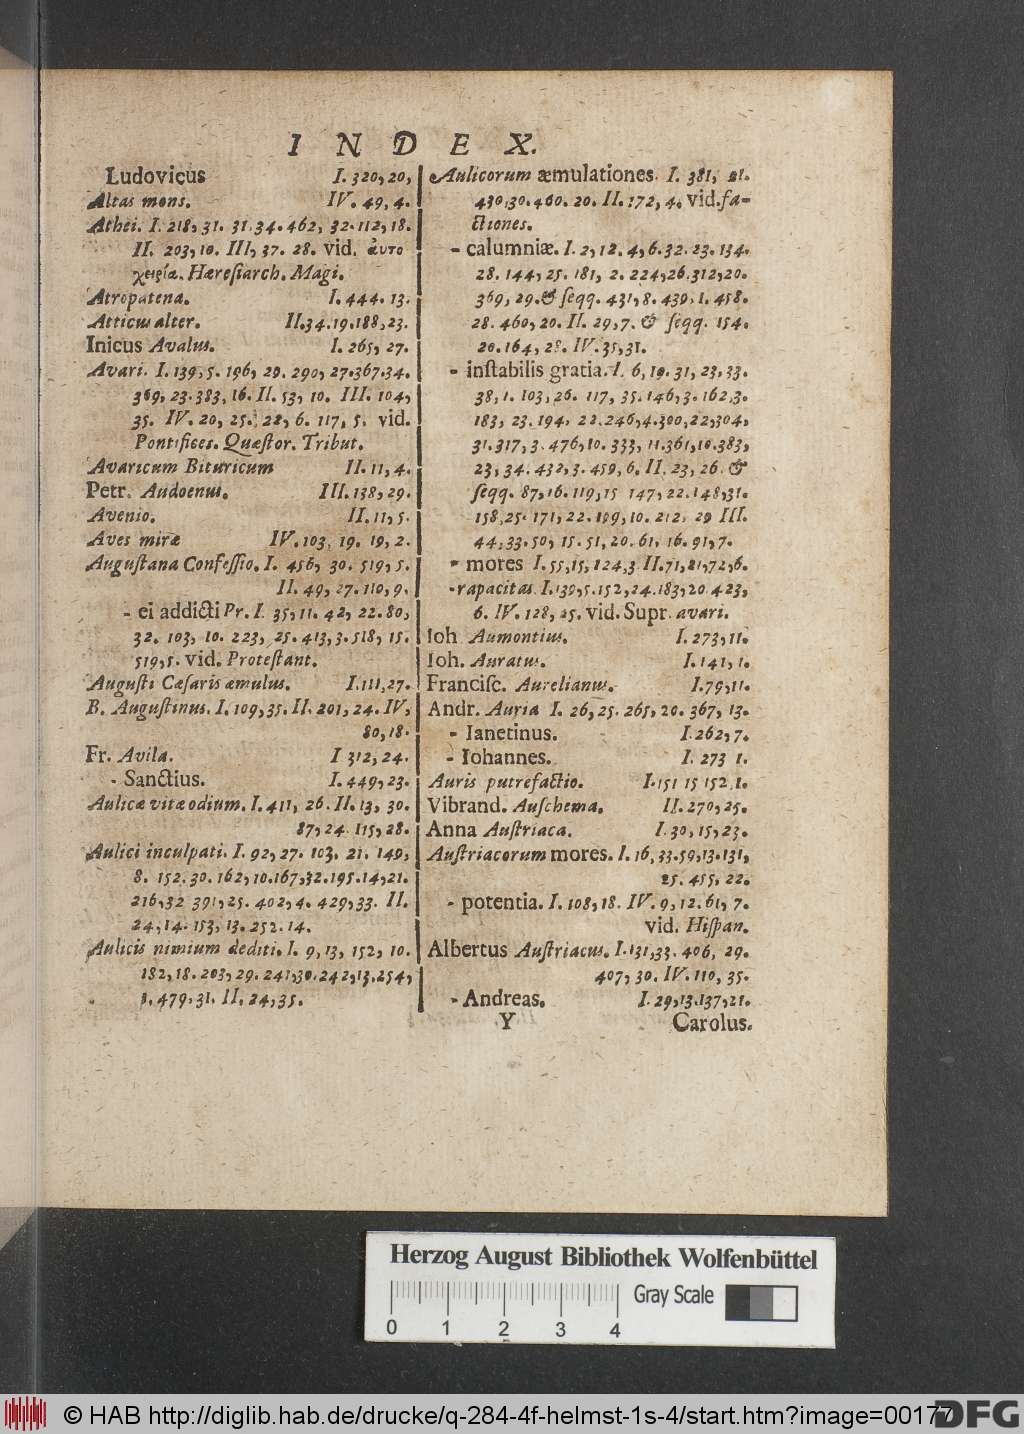 INDEX.
Ludovicus I. 320,20,
Altas mons. IV. 49, 4.
Athei. I. 218, 31. 31.34.462, 32.112,18.
II. 203,10. III, 37. 28. vid. ἀυτο
χειρία. Hæresiarch. Magi.
Atropatena. I.444.13.
Atticus alter. II.34.19.188,23.
Inicus Avalus. I.265, 27.
Avari. I. 139, 5. 196, 20. 290, 27.367.34.
369, 23.383, 16. II. 53, 10. III. 104,
35. IV. 20, 25. 28, 6. 117, 5. vid.
Pontifices. Quæstor. Tribut.
Avaricum Bituricum II. 11, 4.
Petr. Audoenus. III.138,29.
Avenio. II.11,5.
Aves miræ IV.103, 19. 19, 2.
Augustana Confessio. I. 456, 30. 519, 5.
II. 49, 27.110,9.
- ei addicti Pr. I. 35,11. 42, 22.80,
32. 103, 10. 223, 25.413,3.518, 15.
519,5. vid. Protestant.
Augusti Cæsaris æmulus. I.111,27.
B. Augustinus. I. 109,35. II. 201, 24. IV,
80,18.
Fr. Avila. I 312, 24.
- Sanctius. I.449,23.
Aulicæ vitæ odium. I.411, 26. II.13, 30.
87,24. 115,28.
Aulici inculpati. I. 92,27. 103. 21. 149,
8. 152.30. 162,10.167,32.195.14,21.
216,32 391,25. 402,4. 429,33. II.
24,14. 153, 13.252.14.
Aulicis nimium dediti. I. 9,13, 152, 10.
182,18.203,29.241,30.242,13.254,
1.479,31. II. 24,35.
Aulicorum æmulationes. I. 381, 21.
430,30.460. 20. II. 172, 4. vid. fa-
ctiones.
- calumniæ. I. 2,12. 4,6.32. 23.134.
28. 144,25. 181, 2. 224,26.312,20.
369, 29.& seqq. 431,8. 439,1. 458.
28. 460,20. II. 29,7. & seqq. 154.
20.164, 28. IV.35,31.
- instabilis gratia. I. 6,19. 31, 23,33.
38,1. 103,26. 117, 35.146,3.162,3.
183, 23.194, 22.246,4.300,22,304,
31.317,3.476,10. 333, 11.361,10.383,
23, 34. 432,3. 459,6. II. 23, 26. &
seqq. 87,16.119,15 147,22.148,31.
158,25. 171,22.199,10.212, 29 III.
44,33.50, 15.51,20.61, 16.91,7.
- mores I.55,15,124,3 II.71,21,72,6.
- rapacitas I.139,5.152,24.183,20 423,
6. IV. 128, 25. vid. Supr. avari.
Ioh Aumontius. I.273,11.
Ioh. Auratus. I.141,1.
Francisc. Aurelianus. I.79,11.
Andr. Auria I. 26,25.265,20.367, 13.
- Ianetinus. I.262,7.
- Iohannes. I. 273 1.
Auris putrefactio. I.151 15 152,1.
Vibrand. Auschema. II.270,25.
Anna Austriaca. I.30,15,23.
Austriacorum mores. I.16,33.59,13.131,
25. 455, 22.
- potentia. I. 108,18. IV. 9, 12.61, 7.
vid. Hispan.
Albertus Austriacus. I.131,33. 406, 29.
407, 30. IV. 110, 35.
- Andreas. I.29,13.137,21.
Y Carolus.
Herzog August Bibliothek Wolfenbüttel
0 1 2 3 4 Gray Scale
© HAB http://diglib.hab.de/drucke/q-284-4f-helmst-1s-4/start.htm?image=00177
DFG